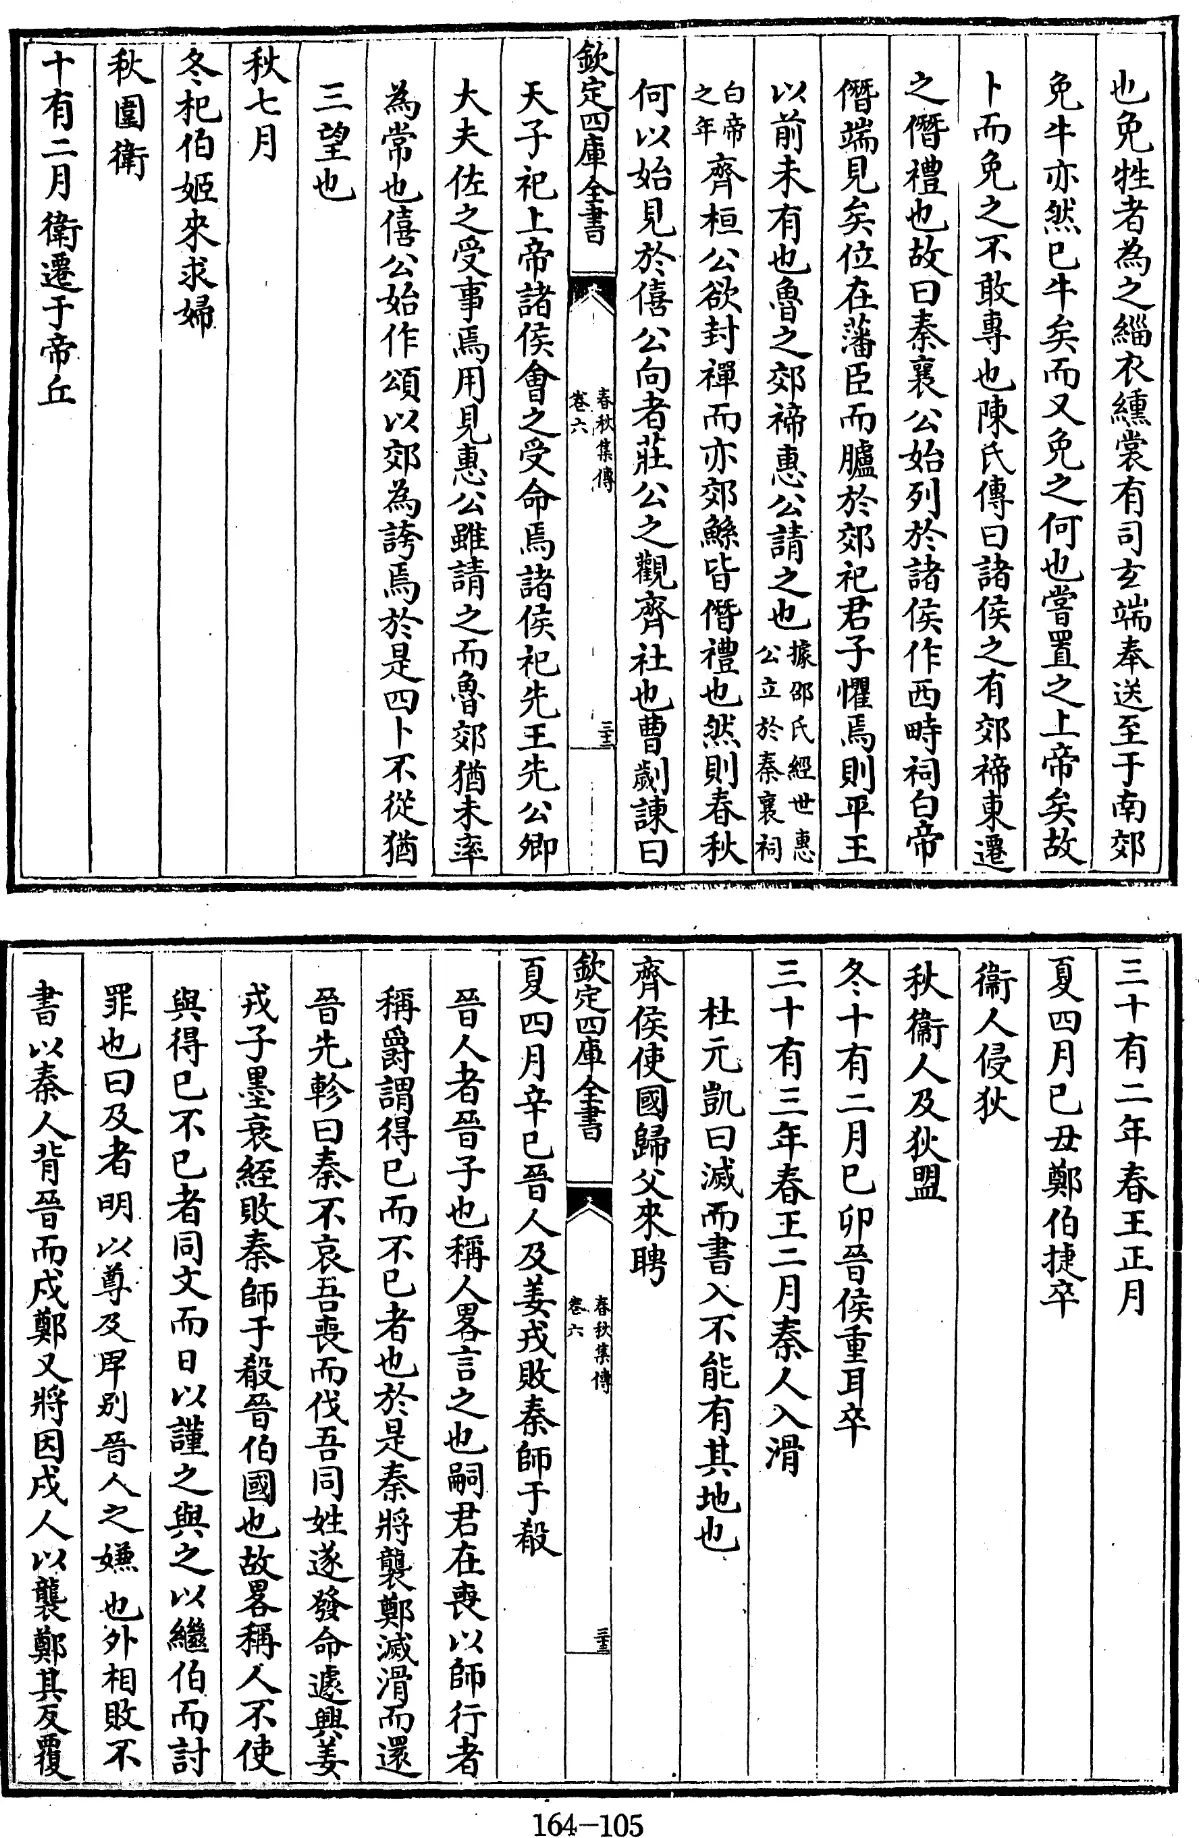 也免牲者為之緇衣纁裳有司玄端奉送至于南郊
免牛亦然已牛矣而又免之何也嘗置之上帝矣故
卜而免之不敢專也陳氏傳曰諸侯之有郊禘東遷
之僭禮也故曰秦襄公始列於諸侯作西畤祠白帝
僭端見矣位在藩臣而臚於郊祀君子懼焉則平王
以前未有也魯之郊禘惠公請之也據邵氏經世惠公立於秦襄祠
白帝之年齊桓公欲封禪而亦郊鯀皆僭禮也然則春秋
何以始見於僖公向者莊公之觀齊社也曹劌諫曰
欽定四庫全書
春秋集傳
卷六
三十二
天子祀上帝諸侯會之受命焉諸侯祀先王先公卿
大夫佐之受事焉用見惠公雖請之而魯郊猶未率
為常也僖公始作頌以郊為誇焉於是四卜不從猶
三望也
秋七月
冬杞伯姬來求婦
秋圍衛
十有二月衛遷于帝丘
三十有二年春王正月
夏四月己丑鄭伯捷卒
衞人侵狄
秋衞人及狄盟
冬十有二月己卯晉侯重耳卒
三十有三年春王二月秦人入滑
杜元凱曰滅而書入不能有其地也
齊侯使國歸父來聘
欽定四庫全書
春秋集傳
卷六
三十三
夏四月辛巳晉人及姜戎敗秦師于殽
晉人者晉子也稱人畧言之也嗣君在喪以師行者
稱爵謂得已而不已者也於是秦將襲鄭滅滑而還
晉先軫曰秦不哀吾喪而伐吾同姓遂發命遽興姜
戎子墨衰絰敗秦師于殽晉伯國也故畧稱人不使
與得已不已者同文而日以謹之與之以繼伯而討
罪也曰及者明以尊及卑別晉人之嫌也外相敗不
書以秦人背晉而戍鄭又將因戍人以襲鄭其反覆
164-105